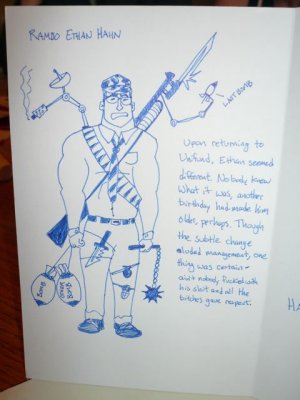 RAMBO ETHAN HAHN
LAST BOMB
Upon returning to
Unifund, Ethan seemed
different. Nobody knew
what it was, another
birthday had made him
older, perhaps. Though
the subtle change
eluded management, one
thing was certain-
ain't nobody fucked with
his shit and all the
bitches gave respect.
BOMB
BOMB
HA